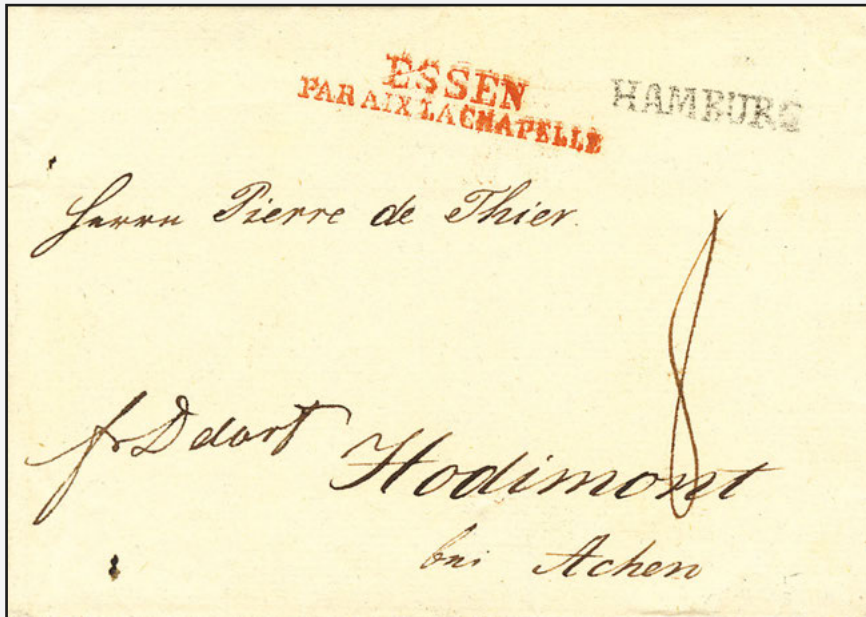 ESSEN
PAR AIX LA CHAPELLE
HAMBURG
Herrn Pierre de Thier.
8
fr Ddorf
Hodimont
bei Achen